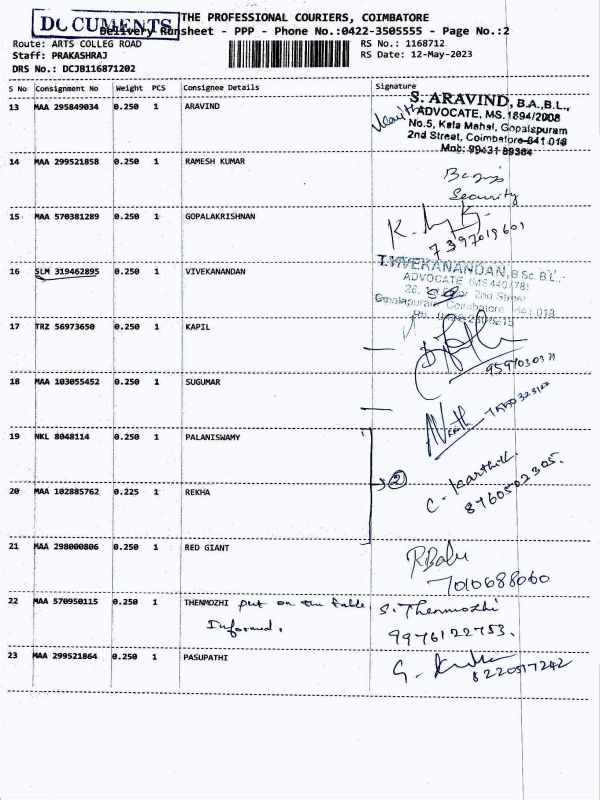 DOCUMENTS
THE PROFESSIONAL COURIERS, COIMBATORE
Delivery Runsheet - PPP - Phone No.:0422-3505555 - Page No.:2
Route: ARTS COLLEG ROAD
RS No.: 1168712
Staff: PRAKASHRAJ
RS Date: 12-May-2023
DRS No.: DCJB116871202
S No Consignment No Weight PCS Consignee Details Signature
13 MAA 295849034 0.250 1 ARAVIND
S. ARAVIND, B.A.,B.L.,
ADVOCATE, MS.1894/2008
No.5, Kala Mahal, Gopalapuram
2nd Street, Coimbatore-641 018
Mob: 99431 89364
14 MAA 299521858 0.250 1 RAMESH KUMAR
Security
15 MAA 570381289 0.250 1 GOPALAKRISHNAN
7397019601
16 SLM 319462895 0.250 1 VIVEKANANDAN
T.VIVEKANANDAN, B.Sc. B.L.,
ADVOCATE (MS 440/78)
2nd Street
Gopalapuram Coimbatore 641 018
17 TRZ 56973650 0.250 1 KAPIL
18 MAA 103055452 0.250 1 SUGUMAR
19 NKL 8048114 0.250 1 PALANISWAMY
20 MAA 102885762 0.225 1 REKHA
2
C. Karthik
8760502305.
21 MAA 298000806 0.250 1 RED GIANT
R Babu
7010688060
22 MAA 570950115 0.250 1 THENMOZHI put on the table, S. Thenmozhi
Informed. 9976122753.
23 MAA 299521864 0.250 1 PASUPATHI
8220517242